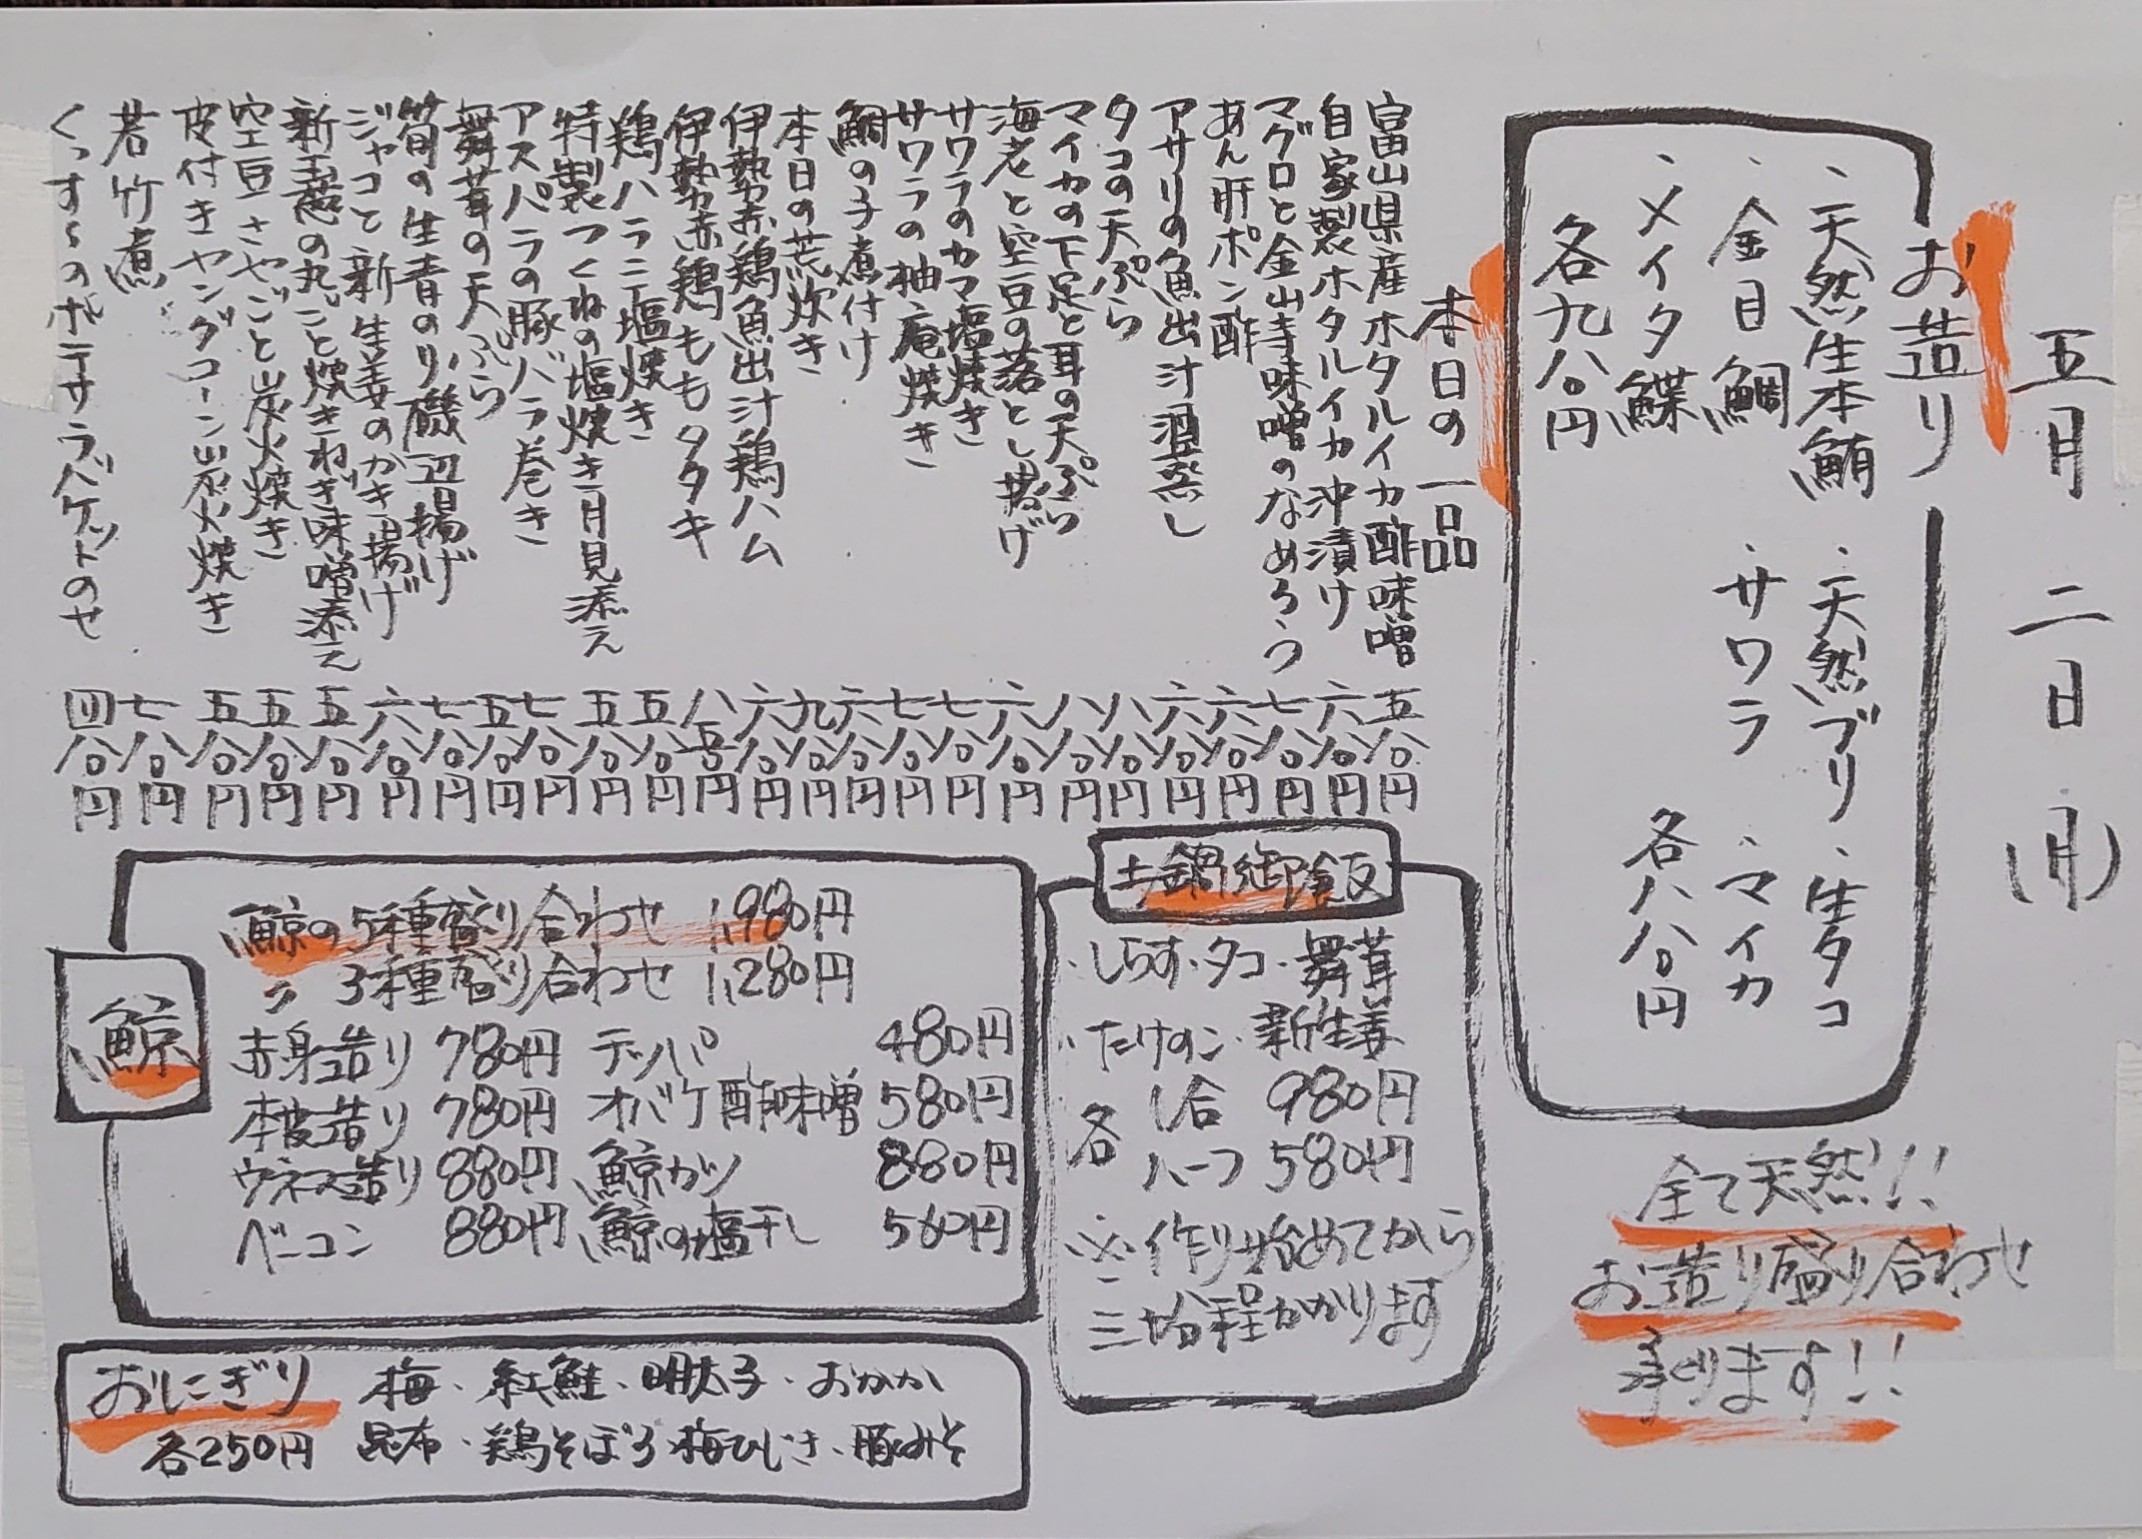 五月二日(月)
お造り
・天然生本鮪 ・天然ブリ ・生タコ
・金目鯛 ・サワラ ・マイカ
・メイタ鰈 各八八〇円
各九八〇円
全て天然!!
お造り盛り合わせ
承ります!!
本日の一品
富山県産ホタルイカ酢味噌 五八〇円
自家製ホタルイカ沖漬け 六八〇円
マグロと金山寺味噌のなめろう 七八〇円
あん肝ポン酢 六八〇円
アサリの魚出汁酒蒸し 六八〇円
タコの天ぷら 八八〇円
マイカの下足と耳の天ぷら 八八〇円
海老と空豆の落とし揚げ 六八〇円
サワラのカマ塩焼き 七八〇円
サワラの柚庵焼き 七八〇円
鯛の子煮付け 六八〇円
本日の荒炊き 九八〇円
伊勢赤鶏魚出汁鶏ハム 六八〇円
伊勢赤鶏ももタタキ 八五〇円
鶏ハラミ塩焼き 五八〇円
特製つくねの塩焼き月見添え 五八〇円
アスパラの豚バラ巻き 七八〇円
舞茸の天ぷら 五八〇円
筍の生青のり磯辺揚げ 七八〇円
ジャコと新生姜のかき揚げ 六八〇円
新玉葱の丸ごと焼きねぎ味噌添え 五八〇円
空豆さやごと炭火焼き 五八〇円
皮付きヤングコーン炭火焼き 五八〇円
若竹煮 七八〇円
くっすんのポテサラバケットのせ 四八〇円
土鍋御飯
・しらす・タコ・舞茸
・たけのこ・新生姜
各 1合 980円
ハーフ 580円
※作り始めてから
三十分程かかります
鯨
鯨の5種盛り合わせ 1,980円
〃 3種盛り合わせ 1,280円
赤身造り 780円 テッパ 480円
本皮造り 780円 オバケ酢味噌 580円
ウネス造り 880円 鯨カツ 880円
ベーコン 880円 鯨の塩干し 560円
おにぎり 梅・紅鮭・明太子・おかか
各250円 昆布・鶏そぼろ・梅ひじき・豚みそ